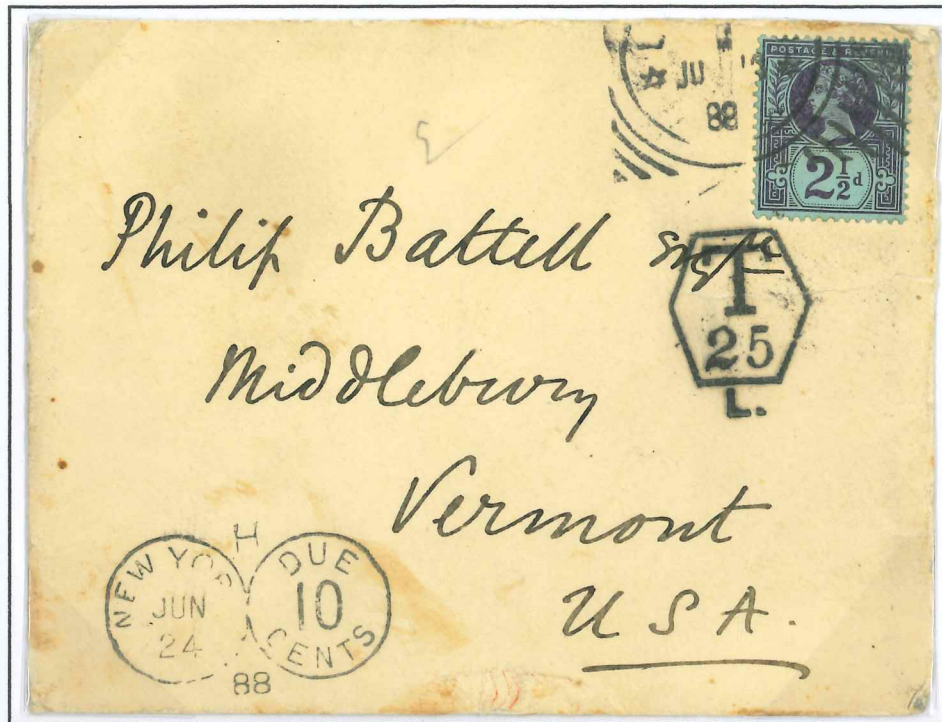 JU
88
POSTAGE & REVENUE
2½d
Philip Battell Esqre
T
25
L.
Middlebury
Vermont
U S A.
H
NEW YOR
JUN
24
88
DUE
10
CENTS